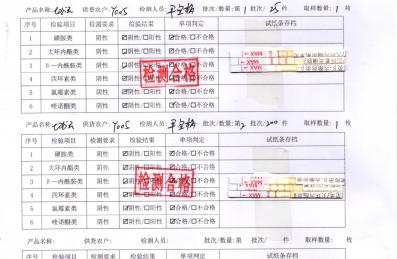 产品名称: 供货农户: Y005 检测人员: 批次/数量: 第1批次/25件 取样数量: 1枚
序号 检验项目 检测要求 检验结果 单项判定 试纸条存档
1 磺胺类 阴性 ☑阴性/☐阳性 ☑合格/☐不合格
2 大环内酯类 阴性 ☑阴性/☐阳性 ☑合格/☐不合格
3 β-内酰胺类 阴性 ☑阴性/☐阳性 ☑合格/☐不合格
4 四环素类 阴性 ☑阴性/☐阳性 ☑合格/☐不合格
5 氯霉素类 阴性 ☑阴性/☐阳性 ☑合格/☐不合格
6 喹诺酮类 阴性 ☑阴性/☐阳性 ☑合格/☐不合格
检测合格
MAX
MAX
产品名称: 供货农户: Y005 检测人员: 批次/数量: 第2批次/200件 取样数量: 1枚
序号 检验项目 检测要求 检验结果 单项判定 试纸条存档
1 磺胺类 阴性 ☑阴性/☐阳性 ☑合格/☐不合格
2 大环内酯类 阴性 ☑阴性/☐阳性 ☑合格/☐不合格
3 β-内酰胺类 阴性 ☑阴性/☐阳性 ☑合格/☐不合格
4 四环素类 阴性 ☑阴性/☐阳性 ☑合格/☐不合格
5 氯霉素类 阴性 ☑阴性/☐阳性 ☑合格/☐不合格
6 喹诺酮类 阴性 ☑阴性/☐阳性 ☑合格/☐不合格
检测合格
MAX
MAX
产品名称: 供货农户: 检测人员: 批次/数量: 第 批次/ 件 取样数量: 枚
序号 检验项目 检测要求 检验结果 单项判定 试纸条存档